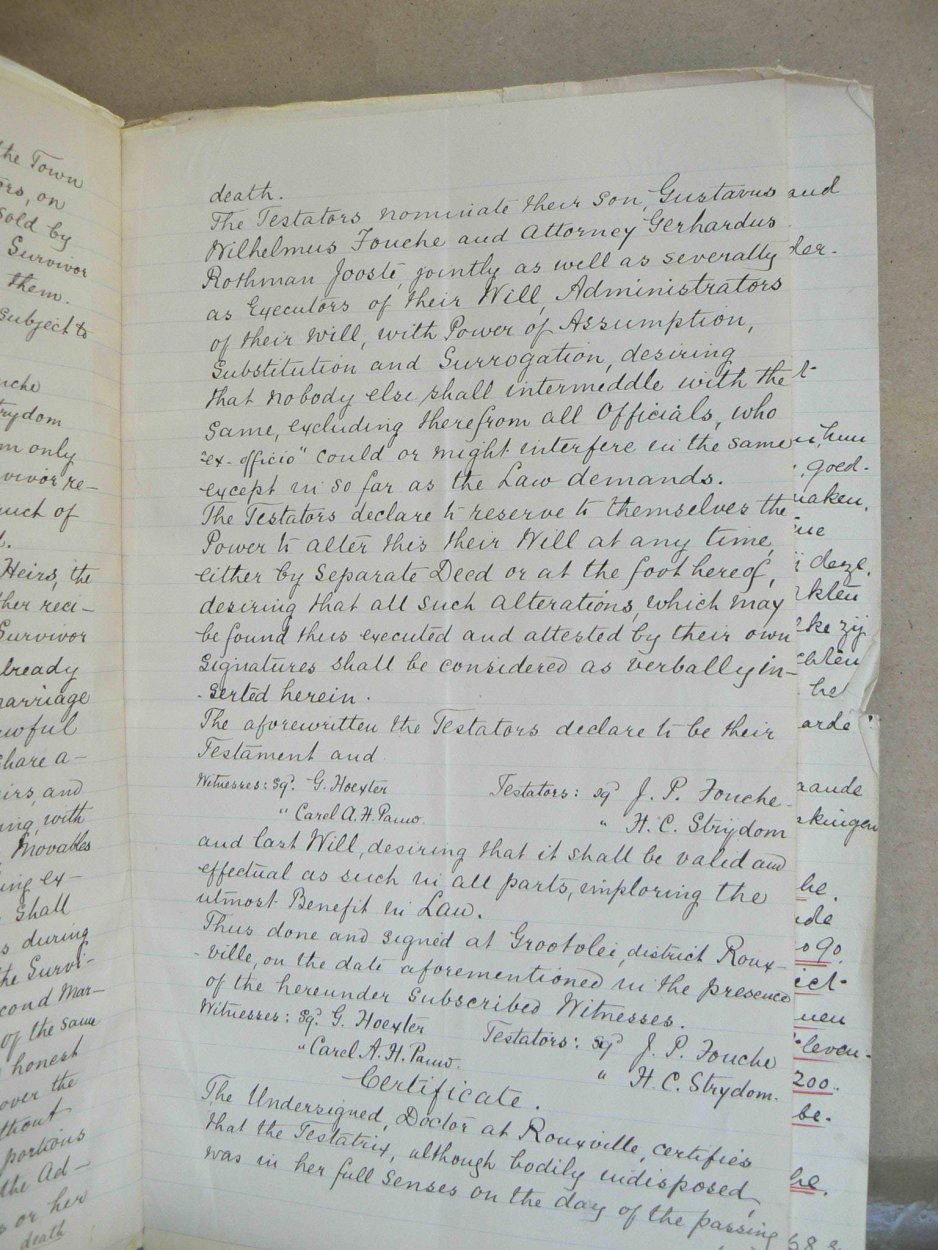 the Town
ors, on
sold by
Survivor
them.
subject to
uche
rydom
m only
vivor re-
uct of
Heirs, the
ther reci-
Survivor
already
marriage
awful
share a-
irs, and
ing, with
Movables
ing ex-
shall
s during
the Survi-
cond Mar-
of the same
honest
over the
thout
portions
the Ad-
s or her
death
death.
The Testators nominate their son, Gustavus
Wilhelmus Fouche and Attorney Gerhardus
Rothman Jooste, jointly as well as severally
as Executors of their Will, Administrators
of their Will, with Power of Assumption,
Substitution and Surrogation, desiring
that nobody else shall intermeddle with the
same, excluding therefrom all Officials, who
"ex-officio" could or might interfere in the same
except in so far as the Law demands.
The Testators declare to reserve to themselves the
Power to alter this their Will at any time,
either by Separate Deed or at the foot hereof,
desiring that all such alterations, which may
be found thus executed and attested by their own
signatures shall be considered as verbally in-
-serted herein.
The aforewritten the Testators declare to be their
Testament and
Witnesses: sgd. G. Hoexter Testators: sgd J. P. Fouche
" Carel A. H. Pauw. " H. C. Strydom
and last Will, desiring that it shall be valid and
effectual as such in all parts, imploring the
utmost Benefit in Law.
Thus done and signed at Grootvlei, district Roux-
-ville, on the date aforementioned in the presence
of the hereunder subscribed Witnesses.
Witnesses: sgd. G. Hoexter Testators: sgd J. P. Fouche
" Carel A. H. Pauw. " H. C. Strydom.
Certificate.
The Undersigned, Doctor at Rouxville, certifies
that the Testatrix, although bodily indisposed,
was in her full senses on the day of the passing
and
der-
t-
hun
goed-
maken,
deze
kten
ke zij
chten
he
arde
aande
kingen
he.
de
90.
ict-
uen
leven-
200.
be-
he.